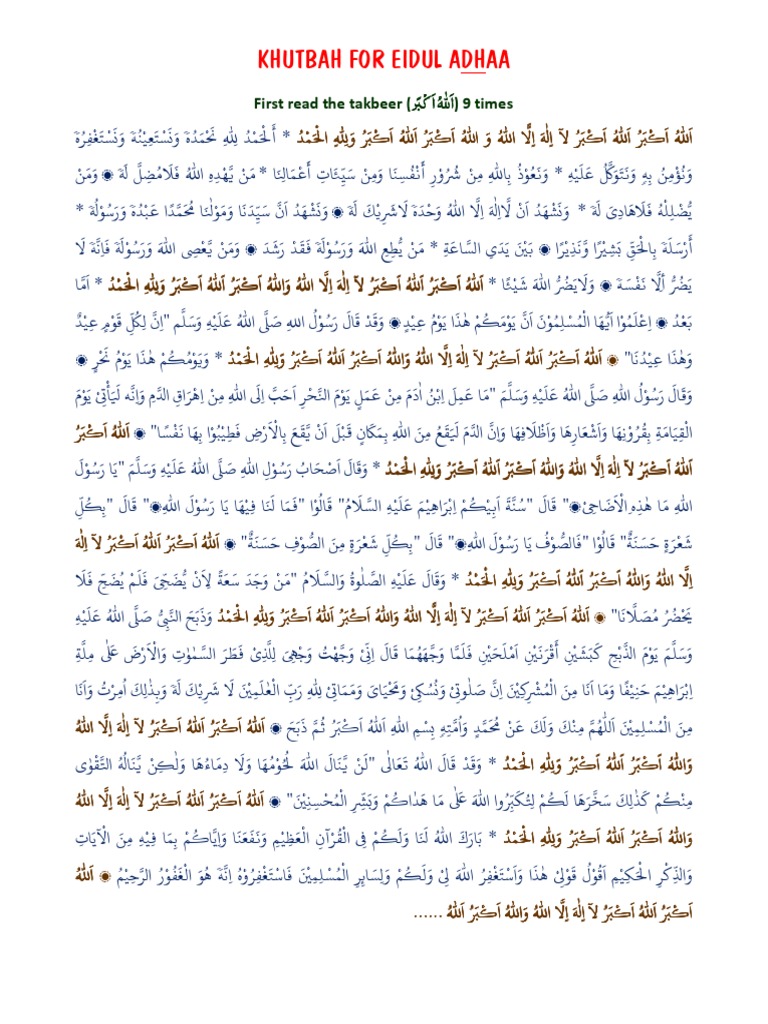 KHUTBAH FOR EIDUL ADHAA
First read the takbeer (اَللّٰهُ اَكْبَرْ) 9 times
اَللّٰهُ اَكْبَرُ اَللّٰهُ اَكْبَرُ لَآ اِلٰهَ اِلَّا اللّٰهُ وَ اللّٰهُ اَكْبَرُ اَللّٰهُ اَكْبَرُ وَلِلّٰهِ الْحَمْدُ * أَلْحَمْدُ لِلّٰهِ نَحْمَدُهٗ وَنَسْتَعِيْنُهٗ وَنَسْتَغْفِرُهٗ
وَنُؤْمِنُ بِهٖ وَنَتَوَكَّلُ عَلَيْهِ * وَنَعُوْذُ بِاللّٰهِ مِنْ شُرُوْرِ أَنْفُسِنَا وَمِنْ سَيِّئَاتِ أَعْمَالِنَا * مَنْ يَّهْدِهِ اللّٰهُ فَلَامُضِلَّ لَهٗ ۞ وَمَنْ
يُّضْلِلْهُ فَلَاهَادِىَ لَهٗ * وَنَشْهَدُ اَنْ لَّااِلٰهَ اِلَّا اللّٰهُ وَحْدَهٗ لَاشَرِيْكَ لَهٗ ۞ وَنَشْهَدُ اَنَّ سَيِّدَنَا وَمَوْلٰنَا مُحَمَّدًا عَبْدُهٗ وَرَسُوْلُهٗ *
أَرْسَلَهٗ بِالْحَقِّ بَشِيْرًا وَّنَذِيْرًا ۞ بَيْنَ يَدَيِ السَّاعَةِ * مَنْ يُّطِعِ اللّٰهَ وَرَسُوْلَهٗ فَقَدْ رَشَدَ ۞ وَمَنْ يَّعْصِى اللّٰهَ وَرَسُوْلَهٗ فَاِنَّهٗ لَا
يَضُرُّ اِلَّا نَفْسَهٗ ۞ وَلَايَضُرُّ اللّٰهَ شَيْئًا * اَللّٰهُ اَكْبَرُ اَللّٰهُ اَكْبَرُ لَآ اِلٰهَ اِلَّا اللّٰهُ وَاللّٰهُ اَكْبَرُ اَللّٰهُ اَكْبَرُ وَلِلّٰهِ الْحَمْدُ * اَمَّا
بَعْدُ ۞ اِعْلَمُوْا اَيُّهَا الْمُسْلِمُوْنَ اَنَّ يَوْمَكُمْ هٰذَا يَوْمُ عِيْدٍ ۞ وَقَدْ قَالَ رَسُوْلُ اللهِ صَلَّى اللّٰهُ عَلَيْهِ وَسَلَّم "اِنَّ لِكُلِّ قَوْمٍ عِيْدٌ
وَهٰذَا عِيْدُنَا" ۞ اَللّٰهُ اَكْبَرُ اَللّٰهُ اَكْبَرُ لَآ اِلٰهَ اِلَّا اللّٰهُ وَاللّٰهُ اَكْبَرُ اَللّٰهُ اَكْبَرُ وَلِلّٰهِ الْحَمْدُ * وَيَوْمُكُمْ هٰذَا يَوْمُ نَحْرٍ ۞
وَقَالَ رَسُوْلُ اللّٰهِ صَلَّى اللّٰهُ عَلَيْهِ وَسَلَّمَ "مَا عَمِلَ اِبْنُ اٰدَمَ مِنْ عَمَلٍ يَوْمَ النَّحْرِ اَحَبَّ اِلَى اللّٰهِ مِنْ اِهْرَاقِ الدَّمِ وَاِنَّه لَيَأْتِىْ يَوْمَ
الْقِيَامَةِ بِقُرُوْنِهَا وَاَشْعَارِهَا وَاَظْلَافِهَا وَاِنَّ الدَّمَ لَيَقَعُ مِنَ اللّٰهِ بِمَكَانٍ قَبْلَ اَنْ يَّقَعَ بِالْاَرْضِ فَطِيْبُوْا بِهَا نَفْسًا" ۞ اَللّٰهُ اَكْبَرُ
اَللّٰهُ اَكْبَرُ لَآ اِلٰهَ اِلَّا اللّٰهُ وَاللّٰهُ اَكْبَرُ اَللّٰهُ اَكْبَرُ وَلِلّٰهِ الْحَمْدُ * وَقَالَ اَصْحَابُ رَسُوْلِ اللّٰهِ صَلَّى اللّٰهُ عَلَيْهِ وَسَلَّمَ "يَا رَسُوْلَ
اللّٰهِ مَا هٰذِهِ الْاَضَاحِىْ۞" قَالَ "سُنَّةَ اَبِيْكُمْ اِبْرَاهِيْمَ عَلَيْهِ السَّلَامُ" قَالُوْا "فَمَا لَنَا فِيْهَا يَا رَسُوْلَ اللّٰهِ۞" قَالَ "بِكُلِّ
شَعْرَةٍ حَسَنَةٌ" قَالُوْا "فَالصُّوْفُ يَا رَسُوْلَ اللّٰهِ۞" قَالَ "بِكُلِّ شَعْرَةٍ مِنَ الصُّوْفِ حَسَنَةٌ" ۞ اَللّٰهُ اَكْبَرُ اَللّٰهُ اَكْبَرُ لَآ اِلٰهَ
اِلَّا اللّٰهُ وَاللّٰهُ اَكْبَرُ اَللّٰهُ اَكْبَرُ وَلِلّٰهِ الْحَمْدُ * وَقَالَ عَلَيْهِ الصَّلٰوةُ وَالسَّلَامُ "مَنْ وَجَدَ سَعَةً لِاَنْ يُضَحِّىَ فَلَمْ يُضَحِّ فَلَا
يَحْضُرُ مُصَلَّانَا" ۞ اَللّٰهُ اَكْبَرُ اَللّٰهُ اَكْبَرُ لَآ اِلٰهَ اِلَّا اللّٰهُ وَاللّٰهُ اَكْبَرُ اَللّٰهُ اَكْبَرُ وَلِلّٰهِ الْحَمْدُ وَذَبَحَ النَّبِىُّ صَلَّى اللّٰهُ عَلَيْهِ
وَسَلَّمَ يَوْمَ الذَّبْحِ كَبَشَيْنِ أَقْرَنَيْنِ اَمْلَحَيْنِ فَلَمَّا وَجَّهَهُمَا قَالَ اِنِّىْ وَجَّهْتُ وَجْهِىَ لِلَّذِىْ فَطَرَ السَّمٰوٰتِ وَالْاَرْضَ عَلٰى مِلَّةِ
اِبْرَاهِيْمَ حَنِيْفًا وَمَا اَنَا مِنَ الْمُشْرِكِيْنَ اِنَّ صَلٰوتِىْ وَنُسُكِىْ وَمَحْيَاىَ وَمَمَاتِىْ لِلّٰهِ رَبِّ الْعٰلَمِيْنَ لَا شَرِيْكَ لَهٗ وَبِذٰلِكَ اُمِرْتُ وَاَنَا
مِنَ الْمُسْلِمِيْنَ اَللّٰهُمَّ مِنْكَ وَلَكَ عَنْ مُحَمَّدٍ وَاُمَّتِهِ بِسْمِ اللّٰهِ اَللّٰهُ اَكْبَرُ ثُمَّ ذَبَحَ ۞ اَللّٰهُ اَكْبَرُ اَللّٰهُ اَكْبَرُ لَآ اِلٰهَ اِلَّا اللّٰهُ
وَاللّٰهُ اَكْبَرُ اَللّٰهُ اَكْبَرُ وَلِلّٰهِ الْحَمْدُ * وَقَدْ قَالَ اللّٰهُ تَعَالٰى "لَنْ يَّنَالَ اللّٰهَ لُحُوْمُهَا وَلَا دِمَاءُهَا وَلٰكِنْ يَّنَالُهُ التَّقْوٰى
مِنْكُمْ كَذٰلِكَ سَخَّرَهَا لَكُمْ لِتُكَبِّرُوا اللّٰهَ عَلٰى مَا هَدٰاكُمْ وَبَشِّرِ الْمُحْسِنِيْنَ" ۞ اَللّٰهُ اَكْبَرُ اَللّٰهُ اَكْبَرُ لَآ اِلٰهَ اِلَّا اللّٰهُ
وَاللّٰهُ اَكْبَرُ اَللّٰهُ اَكْبَرُ وَلِلّٰهِ الْحَمْدُ * بَارَكَ اللّٰهُ لَنَا وَلَكُمْ فِى الْقُرْآنِ الْعَظِيْمِ وَنَفَعَنَا وَاِيَّاكُمْ بِمَا فِيْهِ مِنَ الْآيَاتِ
وَالذِّكْرِ الْحَكِيْمِ اَقُوْلُ قَوْلِىْ هٰذَا وَاَسْتَغْفِرُ اللّٰهَ لِىْ وَلَكُمْ وَلِسَايِرِ الْمُسْلِمِيْنَ فَاسْتَغْفِرُوْهُ اِنَّهٗ هُوَ الْغَفُوْرُ الرَّحِيْمُ ۞ اَللّٰهُ
اَكْبَرُ اَللّٰهُ اَكْبَرُ لَآ اِلٰهَ اِلَّا اللّٰهُ وَاللّٰهُ اَكْبَرُ اَللّٰهُ ......